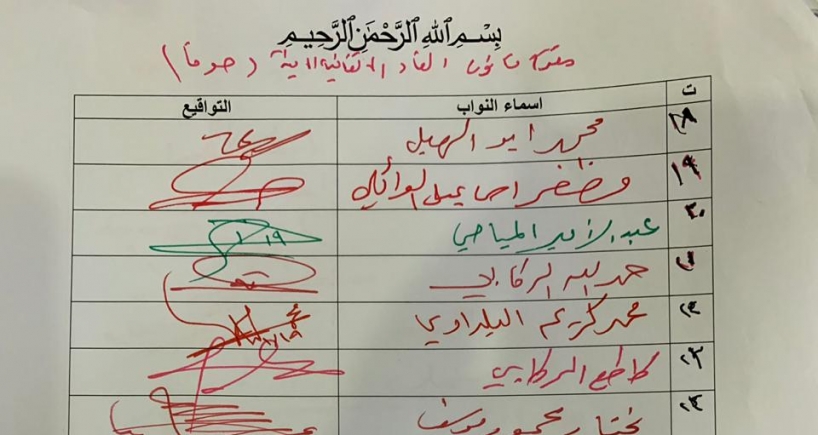 بسم الله الرحمن الرحيم
مقترح قانون الغاء الاتفاقية (صوما)
ت اسماء النواب التواقيع
١٨ محمد ابو الهيل
١٩ مظفر اسماعيل الوائلي
٢٠ عبد الأمير المياحي
٢١ حمد الله الركابي
٢٢ محمد كريم البلداوي
٢٣ كاطع الركابي
٢٤ مختار محمود يوسف